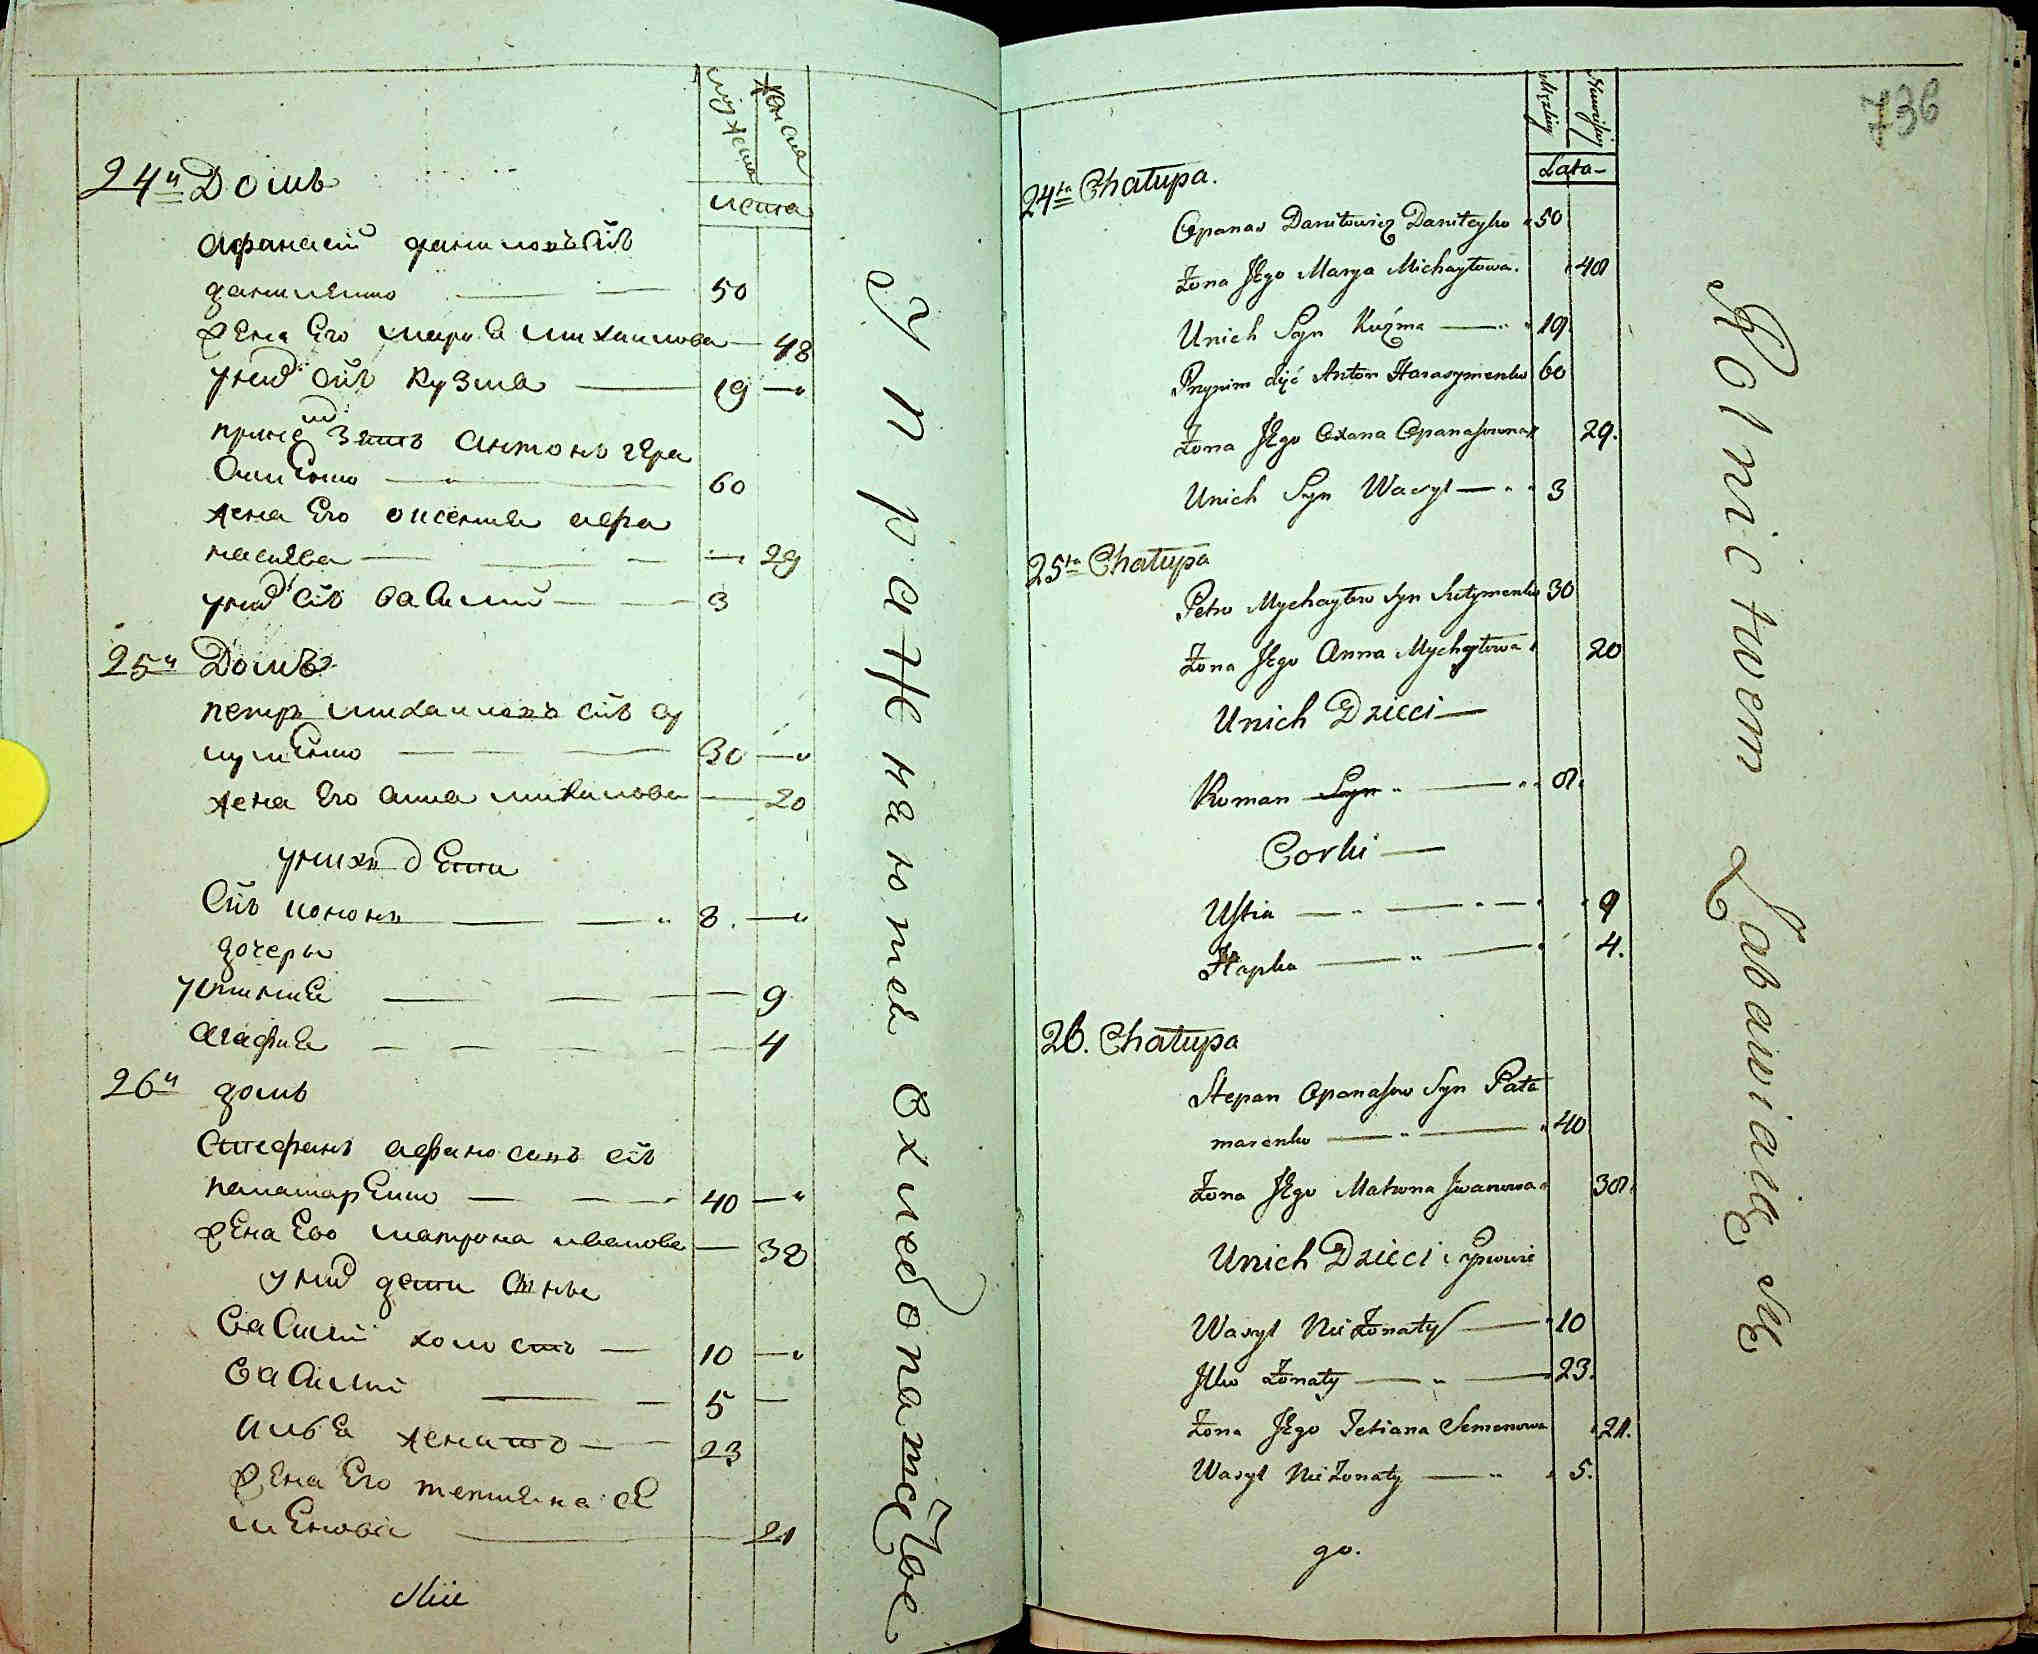 мужеска
женска
лета
24й Домъ
афанасій даниловъ сйъ
данилЕнко 50
жЕна Его марѣя михаилова 48
уних сйъ кузма 19
принят зять антонъ гЕра
симЕнко 60
жена Его оксения афа
насиева 29
уних сйъ василий 3
25й Домъ
петръ михаиловъ сйъ су
лимЕнко 30
жена Его анна михаилова 20
уних дЕти
сйъ романъ 8
дочеры
устиния 9
агафия 4
26й домъ
стефанъ афанасовъ сйъ
паламарЕнко 40
жЕна Ево матрона иванова 38
уних дети сины
василий холостъ 10
василий 5
илья женатъ 23
жЕна Его тетияна сЕ
мЕнова 21
упражнаются вхлебопатстве
736
Męzkiey
Lata
24ta Chałupa.
Opanas Daniłowicz Daniłeyko 50
Żona Jego Marya Michayłowa. 48
Unich Syn Kuźma 19
Przyim Zięć Anton Harasymenko 60
Żona Jego Oxana Opanasowna 29.
Unich Syn Wasyl 3
25ta Chałupa
Petro Mychayłow Syn Sułymenko 30
Żona Jego Anna Mychayłowa 20
Unich Dzieci
Roman Syn 8.
Corki
Ustia 9
Hapka 4.
26. Chałupa
Stepan Opanasow Syn Pała
marenko 40
Żona Jego Matrona Jwanowa 38.
Unich Dzieci Synowie
Wasyl NieŻonaty 10
Jlko Żonaty 23.
Żona Jego Tetiana Semenowa 21.
Wasyl NieŻonaty 5.
go.
Rolnictwem Zabawiaią Się